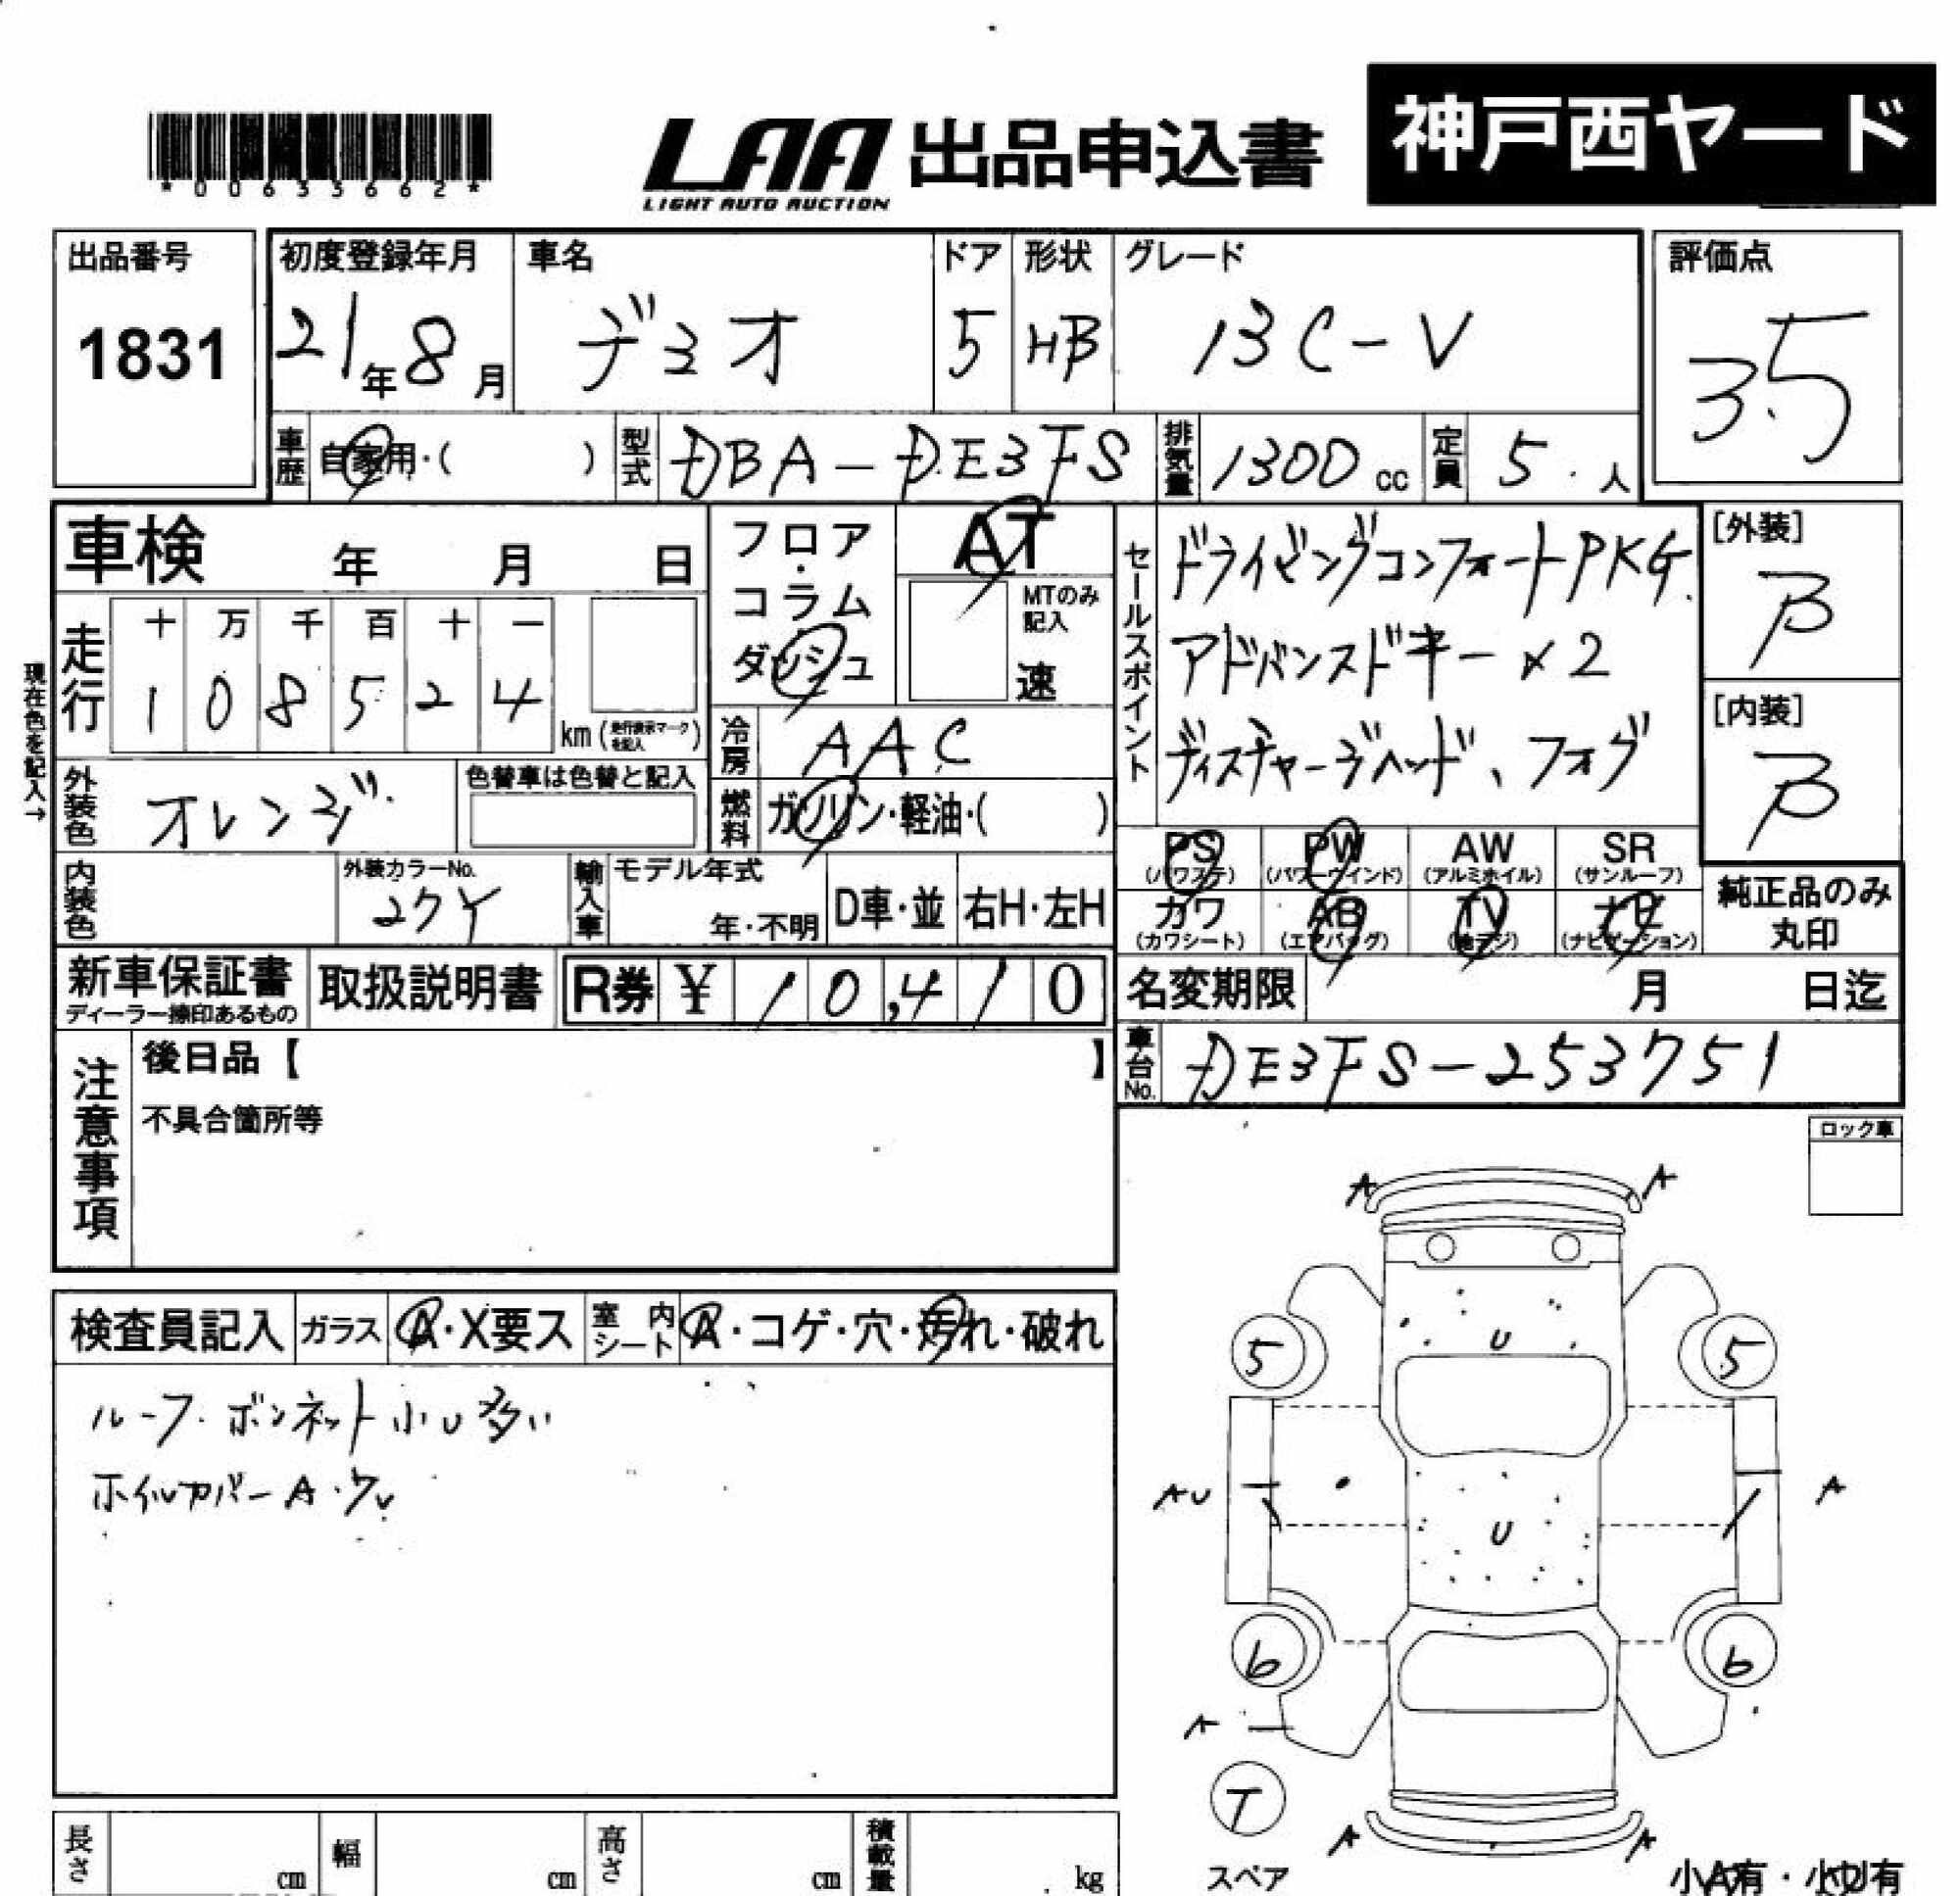 *00635662*
LAA 出品申込書
LIGHT AUTO AUCTION
神戸西ヤード
出品番号
1831
初度登録年月
21年8月
車名
デミオ
ドア
5
形状
HB
グレード
13C-V
評価点
3.5
車歴 自家用・( )
型式 DBA-DE3FS
排気量 1300cc
定員 5人
車検 年 月 日
フロア・コラム
ダッシュ
AT
MTのみ記入
速
セールスポイント
ドライビングコンフォートPKG.
アドバンスドキー×2
ディスチャージヘッド、フォグ
[外装]
B
[内装]
B
現在色を記入→
走行
十 万 千 百 十 一
1 0 8 5 2 4
km(走行表示マークを記入)
冷房 AAC
燃料 ガソリン・軽油・( )
外装色 オレンジ
色替車は色替と記入
内装色
外装カラーNo.
27Y
輸入車
モデル年式
年・不明
D車・並
右H・左H
PS (パワステ)
PW (パワーウインド)
AW (アルミホイル)
SR (サンルーフ)
カワ (カワシート)
AB (エアバッグ)
TV (地デジ)
ナビ (ナビゲーション)
純正品のみ
丸印
新車保証書
ディーラー捺印あるもの
取扱説明書
R券 ¥10,410
名変期限 月 日迄
車台No. DE3FS-253751
注意事項
後日品【 】
不具合箇所等
ロック車
検査員記入
ガラス A・X要ス
室内シート A・コゲ・穴・汚れ・破れ
ルーフ.ボンネット小U多い
ホイルカバーA.
A A
U
5 5
AU A
U
6 6
A
T
スペア
A A
小A有・小U有
長さ cm
幅 cm
高さ cm
積載量 kg